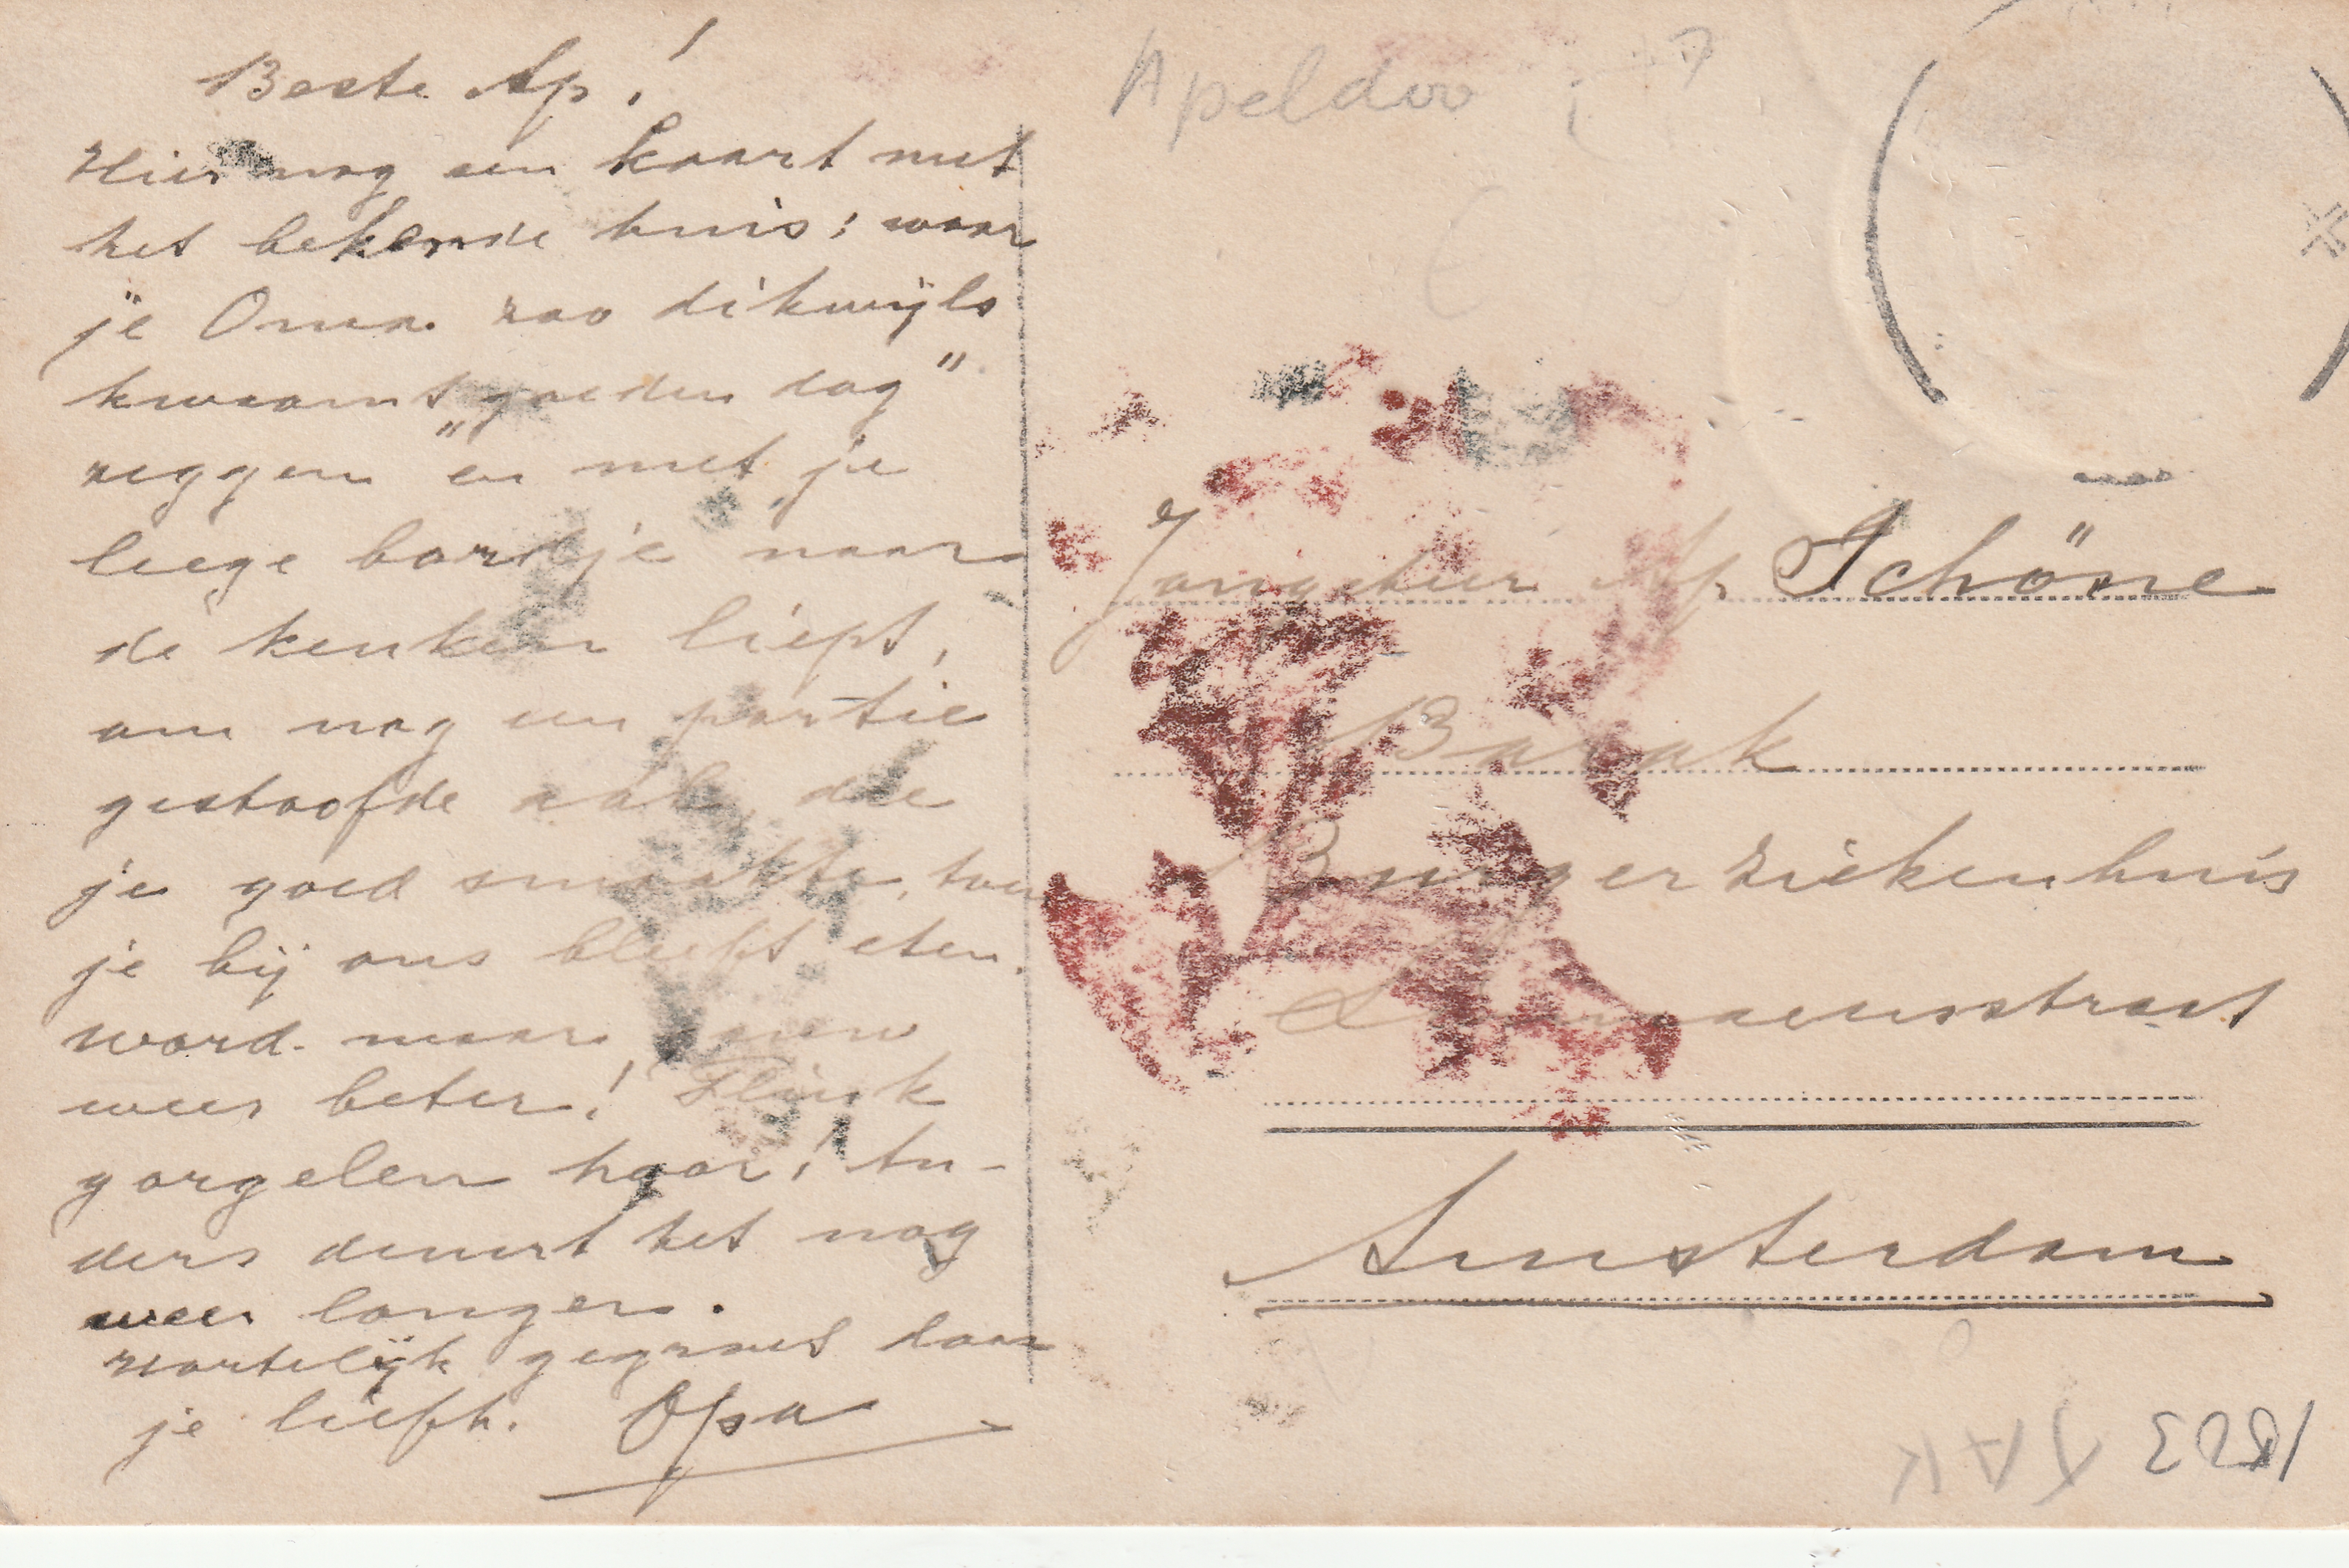 Beste Ap!
Hier nog een kaart met
het bekende huis; waar
je Oma zoo dikwijls
kwaamt „goeden dag”
zeggen en met je
leege bordje naar
de keuken liept,
om nog een portie
gestoofde aal, die
je goed smaakte, toen
je bij ons bleeft eten.
word maar gauw
weer beter! Flink
gorgelen hoor! An-
ders duurt het nog
weer langer.
Hartelijk gegroet door
je liefh. Opa
Apeldoo
Jongeheer Ap Schöne
Barak
Burgerziekenhuis
Linnaeusstraat
Amsterdam